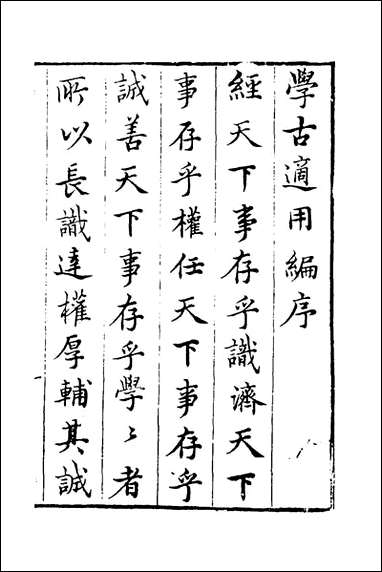 學古適用編序
經天下事存乎識濟天下
事存乎權任天下事存乎
誠善天下事存乎學〻者
所以長識達權厚輔其誠